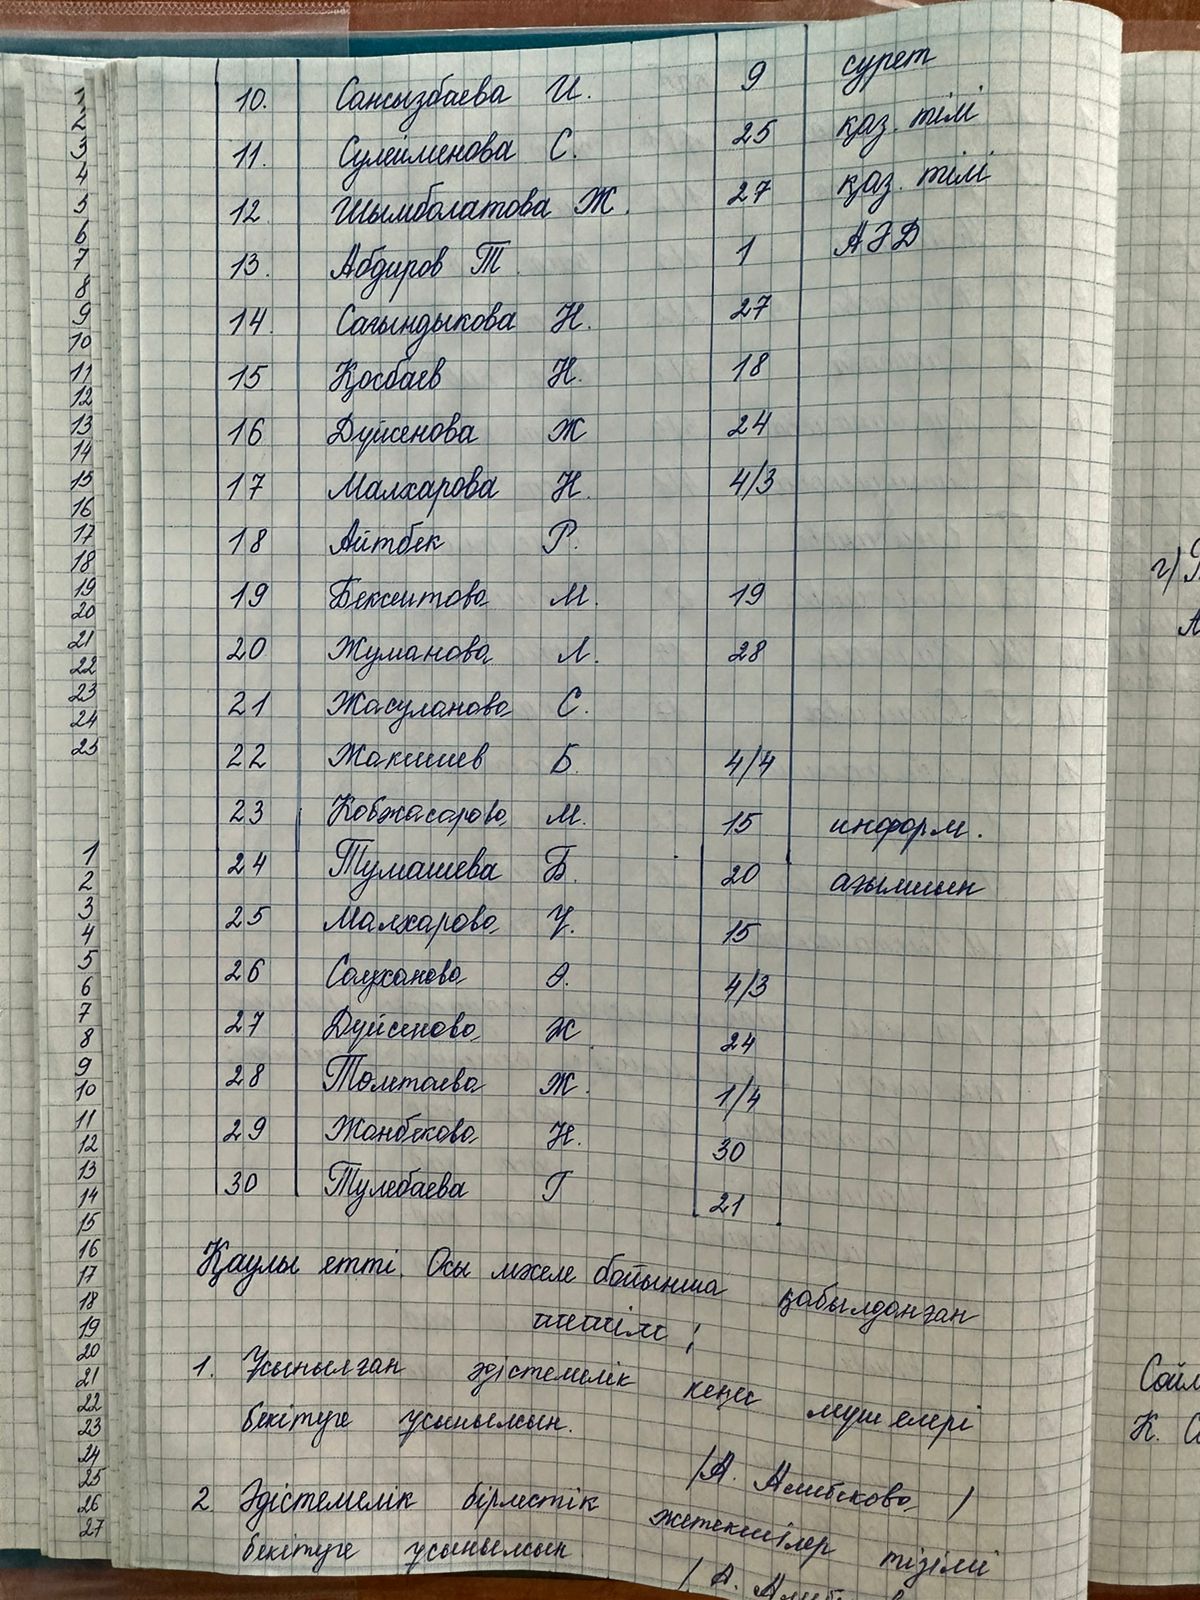 10. Сансызбаева И. 9 сурет
11. Сулейменова С. 25 қаз. тілі
12 Шымболатова Ж. 27 қаз. тілі
13. Абдиров Т 1 АӘД
14. Сагындыкова Н. 27
15 Қосбаев Н. 18
16 Дуйсенова Ж 24
17 Малхарова Н. 4/3
18 Айтбек Р.
19 Бексеитова М. 19
20 Жуманова Л. 28
21 Жасуланова С.
22 Жакишев Б. 4/4
23 Кобжасарова М. 15 информ.
24 Тумашева Б. 20 ағылшын
25 Малхарова У. 15
26 Солуханова Ә. 4/3
27 Дуйсенова Ж. 24
28 Толетаева Ж. 1/4
29 Жанбекова Н. 30
30 Тулебаева Г 21
Қаулы етті. Осы мәселе бойынша қабылданған
шешім;
1. Ұсынылған әдістемелік кеңес мүшелері
бекітуге ұсынымын.
/А. Алибекова /
2. Әдістемелік бірлестік жетекшілер тізімі
бекітуге ұсынымын
/ А.
1
2
3
4
5
6
7
8
9
10
11
12
13
14
15
16
17
18
19
20
21
22
23
24
25
1
2
3
4
5
6
7
8
9
10
11
12
13
14
15
16
17
18
19
20
21
22
23
24
25
26
27
г)
К.